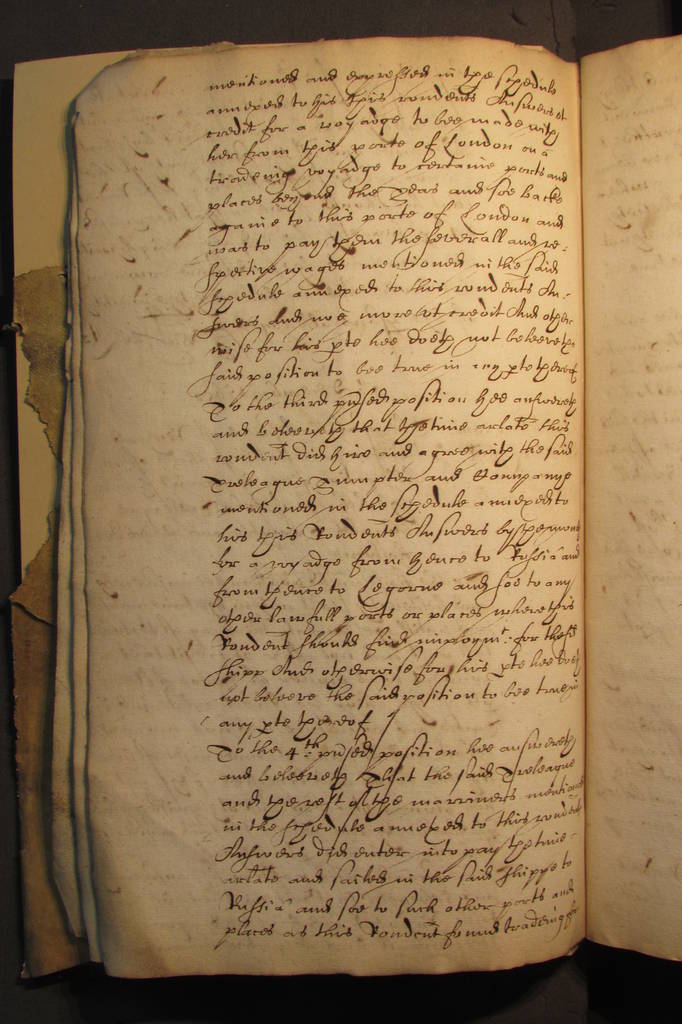 mentioned and expressed in the schedule
annexed to his this rondents Answers et
credit for a voyadge to bee made with
her from this porte of London on a
tradeing voyadge to certaine ports and
places beyond the Seas and soe backe
againe to this porte of London and
was to pay them the severall and re=
spective wages mentioned in the said
schedule annexed to this rondents An=
swers And noe more et credit And other
wise for his pte hee doeth not beleeve the
said position to bee true in any pte thereof
To the third pnsed position hee answereth
and beleeveth that the time arlate this
rondent did hire and agree with the said
Treleague Sumpter and Company
mentioned in the schedule annexed to
his this Rondents Answers by the month
for a voyadge from hence to Russia and
from thence to Legorne and soe to any
other lawfull ports or places where this
Rondent should find imploymt: for the sd
shipp And otherwise for his pte hee doeth
not beleeve the said position to bee true in
any pte thereof
To the 4th pnsed position hee answereth
and beleeveth That the said Treleague
and the rest of the marriners mentioned
in the schedule annexed to this rondents
Answers did enter into pay the time
arlate and sailed in the said shippe to
Russia and soe to such other ports and
places as this Rondent found tradeing for